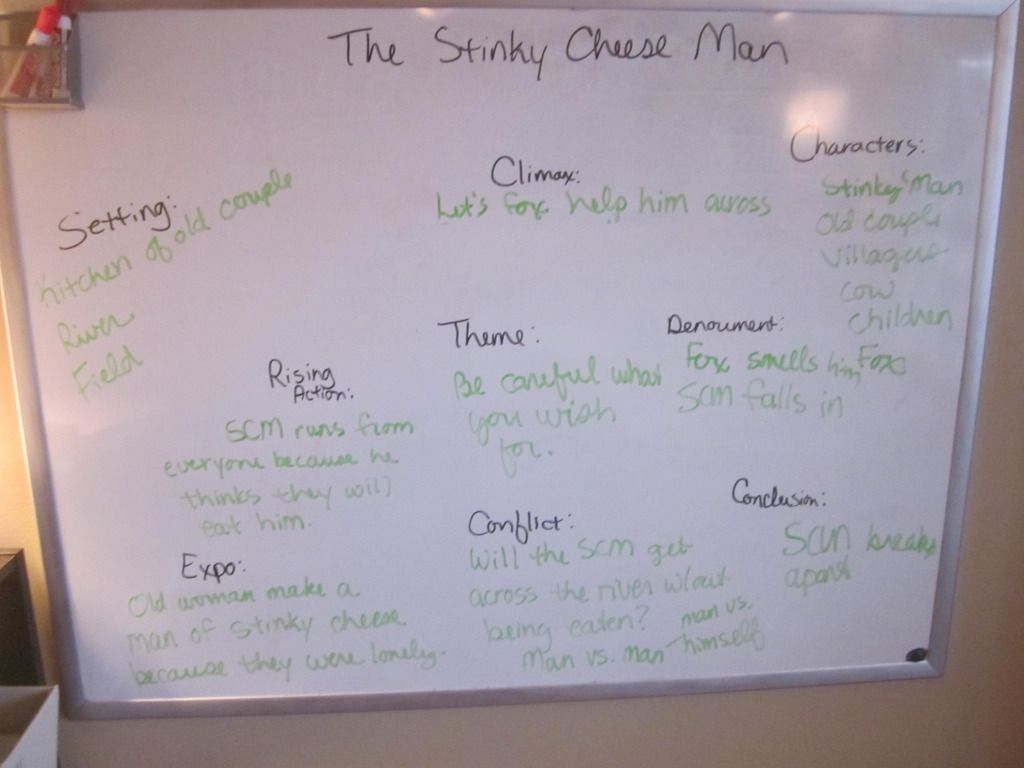 The Stinky Cheese Man
Setting:
Kitchen of old couple
River
Field
Climax:
Let's fox help him across
Characters:
Stinky Man
Old couple
Villagers
Cow
Children
Fox
Rising
Action:
SCM runs from
everyone because he
thinks they will
eat him.
Theme:
Be careful what
you wish
for.
Denoument:
Fox smells him
SCM falls in
Expo:
Old woman make a
man of stinky cheese
because they were lonely.
Conflict:
Will the SCM get
across the river w/out
being eaten?
Man vs. man
man vs.
himself
Conclusion:
SCM breaks
apart